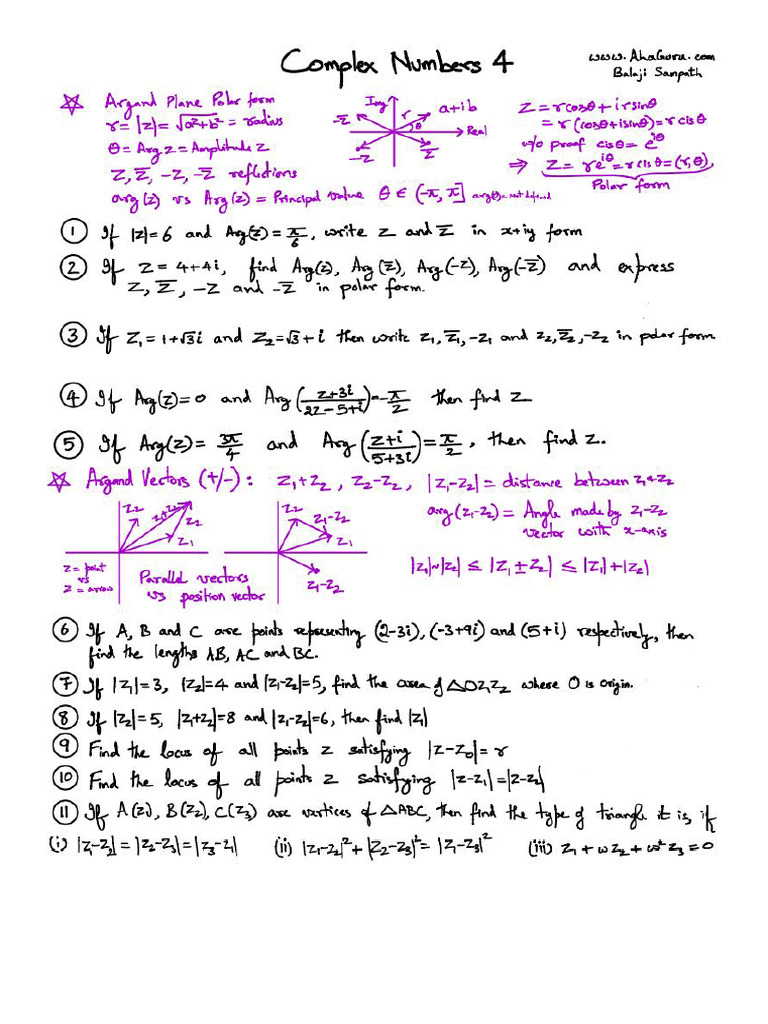 Complex Numbers 4
www.AhaGuru.com
Balaji Sampath
☆ Argand Plane Polar form
r = |z| = √(a²+b²) = radius
θ = Arg z = Amplitude z
z, z̅, -z, -z̅ reflections
arg(z) vs Arg(z) = Principal value θ ∈ (-π, π] arg(0) = not defined
Img
a+ib
-z̅
r
θ
Real
-z
z̅
z = r cosθ + i r sinθ
= r (cosθ + i sinθ) = r cis θ
w/o proof cisθ = e^(iθ)
⇒ z = r e^(iθ) = r cis θ = (r, θ)
Polar form
① If |z| = 6 and Arg(z) = π/6, write z and z̅ in x+iy form
② If z = 4+4i, find Arg(z), Arg(z̅), Arg(-z), Arg(-z̅) and express
z, z̅, -z and -z̅ in polar form.
③ If z₁ = 1+√3i and z₂ = √3+i then write z₁, z̅₁, -z₁ and z₂, z̅₂, -z₂ in polar form
④ If Arg(z) = 0 and Arg((z+3i)/(2z-5+i)) = -π/2 then find z
⑤ If Arg(z) = 3π/4 and Arg((z+i)/(5+3i)) = π/2, then find z.
☆ Argand Vectors (+/-): z₁+z₂, z₂-z₂, |z₁-z₂| = distance between z₁ & z₂
arg(z₁-z₂) = Angle made by z₁-z₂
vector with x-axis
z₂
z₁+z₂
z₂
z₁
z₂
z₁-z₂
z₁
z₁-z₂
z = point
vs
z = arrow
Parallel vectors
vs position vector
|z₁|~|z₂| ≤ |z₁±z₂| ≤ |z₁|+|z₂|
⑥ If A, B and C are points representing (2-3i), (-3+9i) and (5+i) respectively, then
find the lengths AB, AC and BC.
⑦ If |z₁| = 3, |z₂| = 4 and |z₁-z₂| = 5, find the area of △OZ₁Z₂ where O is origin.
⑧ If |z₂| = 5, |z₁+z₂| = 8 and |z₁-z₂| = 6, then find |z₁|
⑨ Find the locus of all points z satisfying |z-z₀| = r
⑩ Find the locus of all points z satisfying |z-z₁| = |z-z₂|
⑪ If A(z₁), B(z₂), C(z₃) are vertices of △ABC, then find the type of triangle it is, if
(i) |z₁-z₂| = |z₂-z₃| = |z₃-z₁| (ii) |z₁-z₂|² + |z₂-z₃|² = |z₁-z₃|² (iii) z₁ + ωz₂ + ω²z₃ = 0